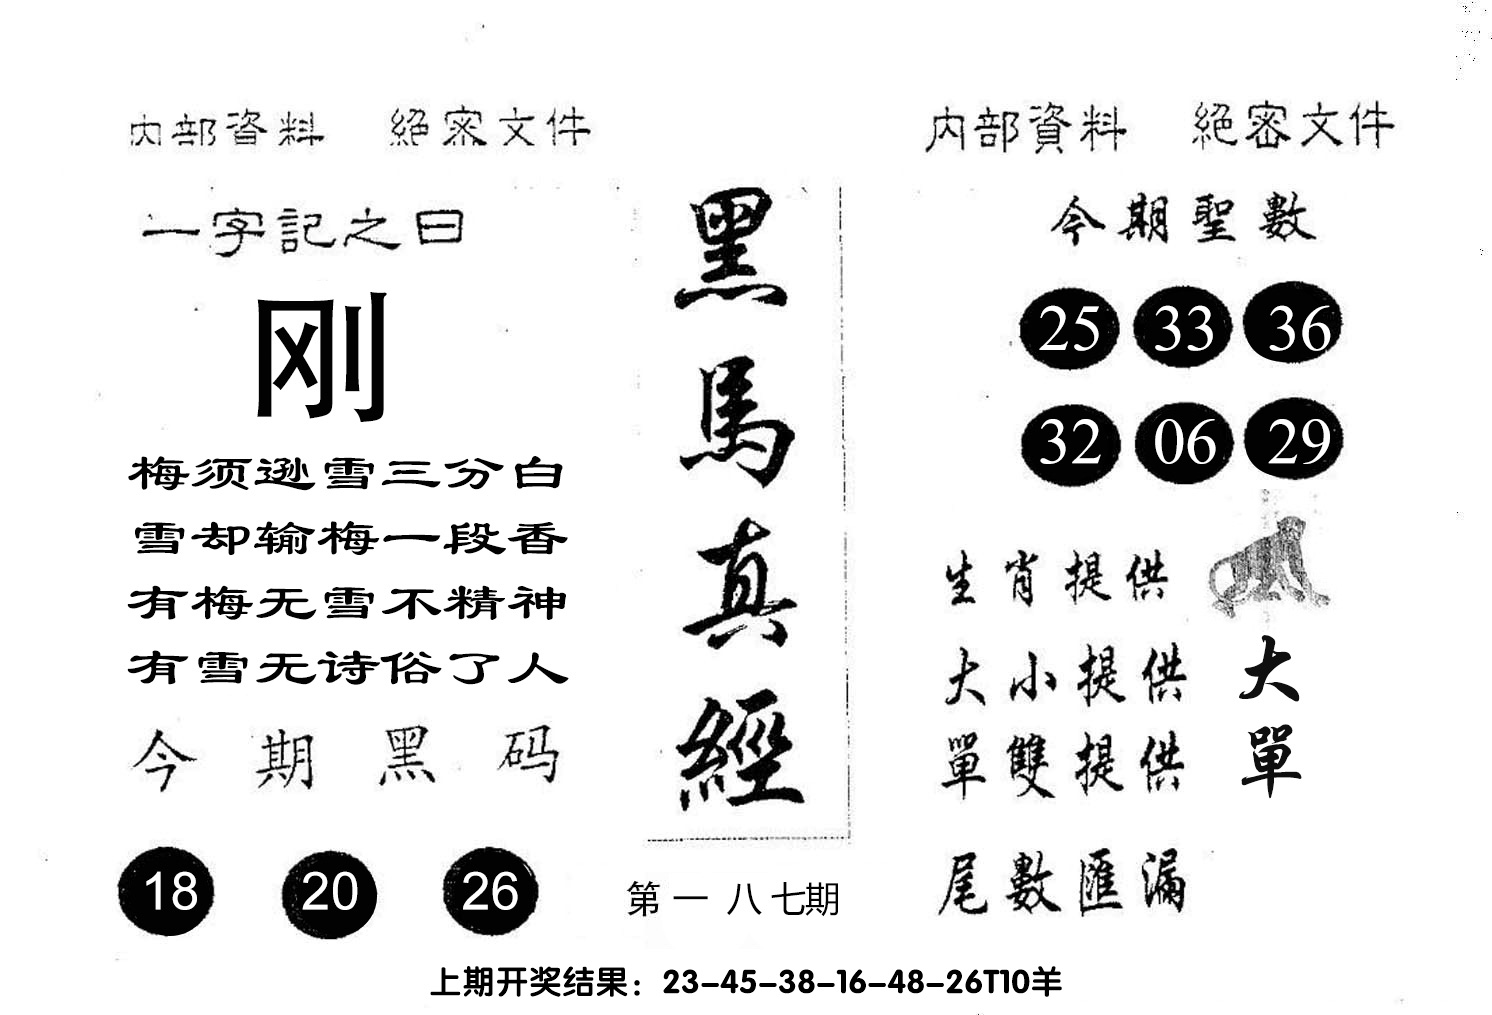 内部資料 絕密文件
一字記之曰
刚
梅须逊雪三分白
雪却输梅一段香
有梅无雪不精神
有雪无诗俗了人
今期黑码
18 20 26
黑馬真經
第一八七期
内部資料 絕密文件
今期聖數
25 33 36
32 06 29
生肖提供
大小提供 大
單雙提供 單
尾數匯漏
上期开奖结果：23-45-38-16-48-26T10羊